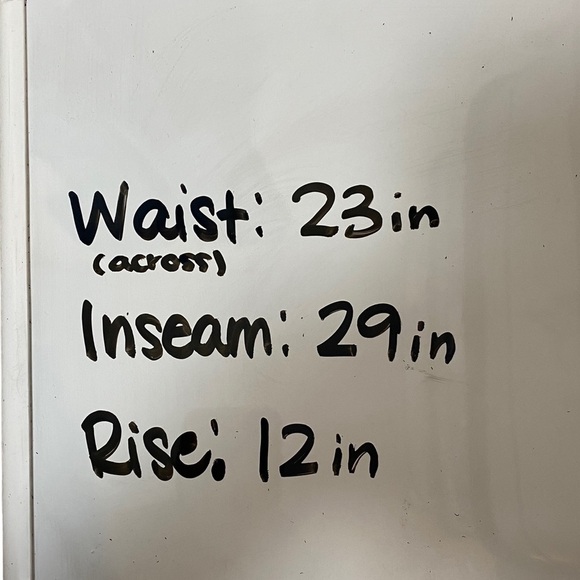 Waist: 23in
(across)
Inseam: 29in
Rise: 12in